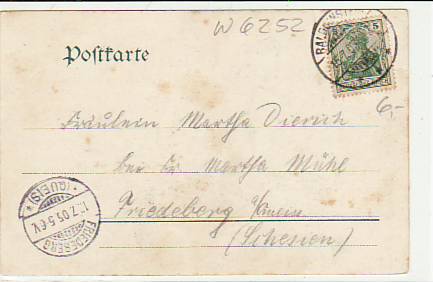 W 6252
Postkarte
5
6,-
Fräulein Martha Dierich
bei Fr Martha Mühl
Friedeberg
(Schlesien)
FRIEDEBERG
(QUEIS)
1.7.05.5-6V.